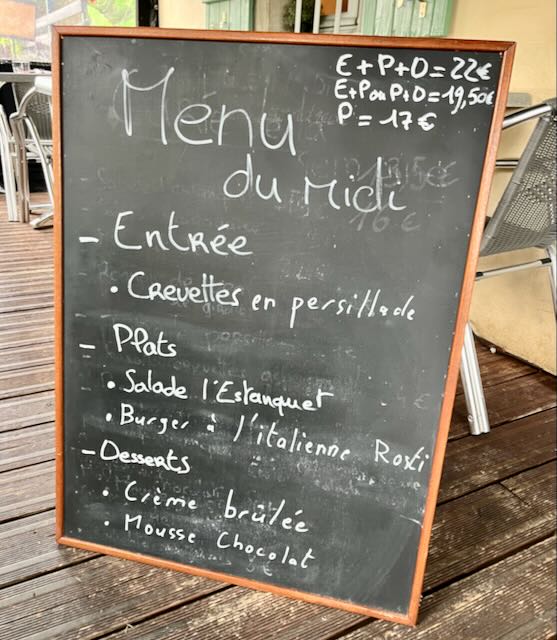 E+P+D=22€
E+P ou P+D=19,50€
P=17€
Menu
du midi
- Entrée
• Crevettes en persillade
- Plats
• Salade l'Estanquet
• Burger à l'italienne Rosti
- Desserts
• Crème brûlée
• Mousse Chocolat